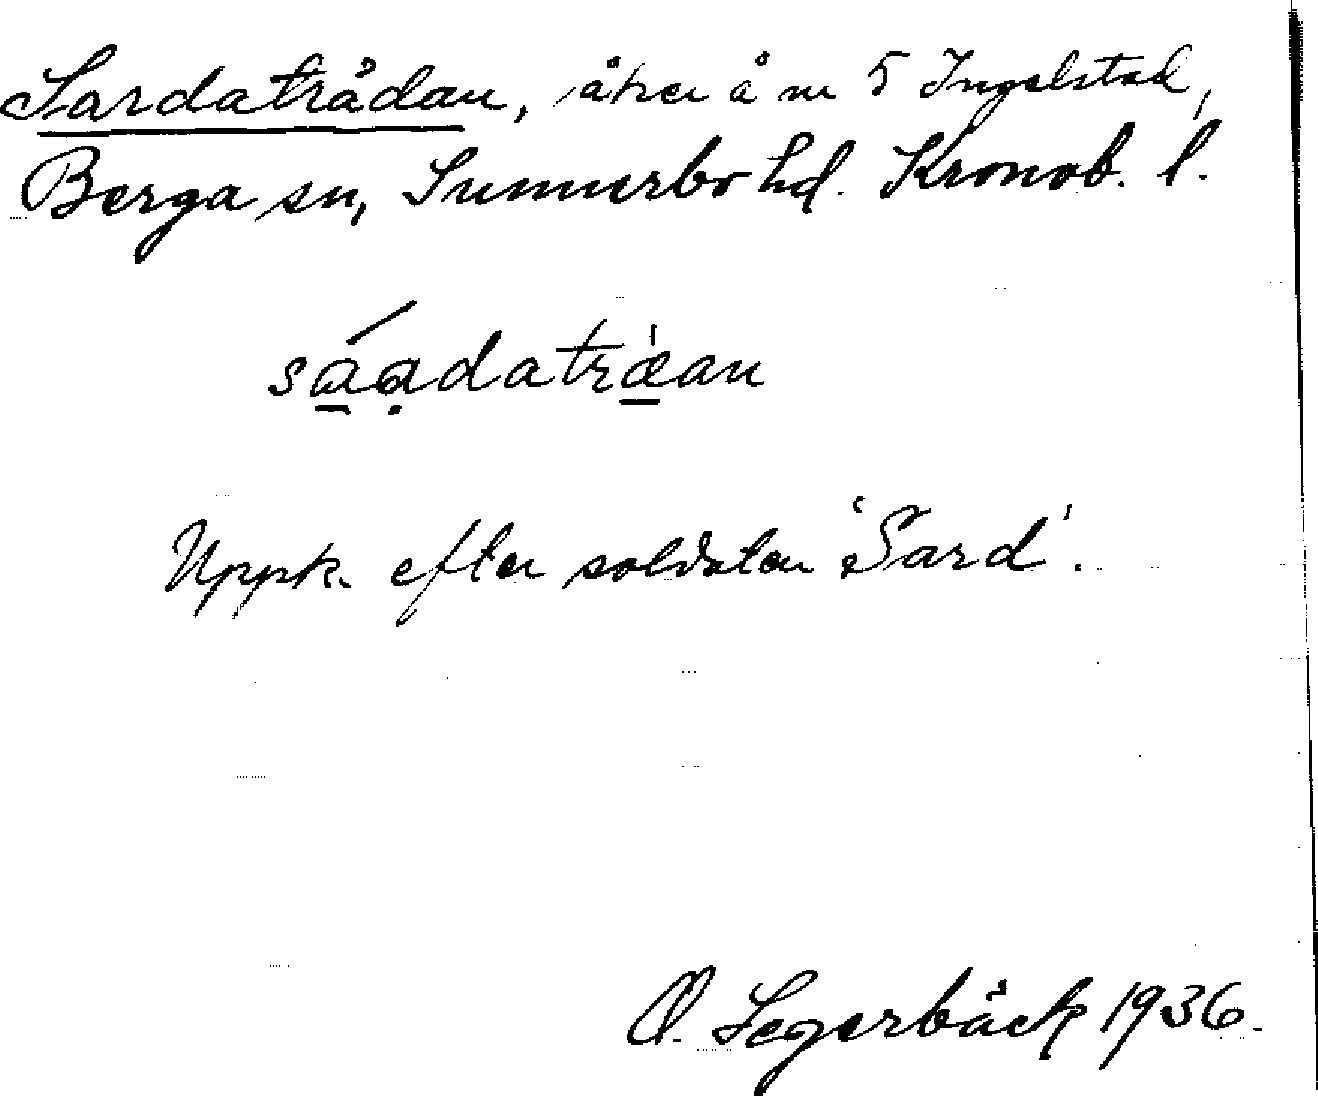 Sardatrådan, åker å nr 5 Ingelstad,
Berga sn, Sunnerbo hd. Kronob. l.
sáadatræ̍an
Uppk. efter soldaten 'Sard'.
O. Segerbäck 1936.